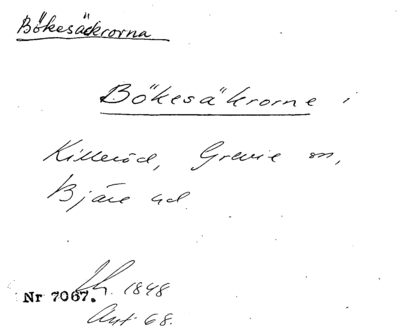 Bökesäckrorna
Bökesäkrorne i
Killeröd, Grevie sn,
Bjäre hd
Lh. 1848
Nr 7067.
Ant. 68.